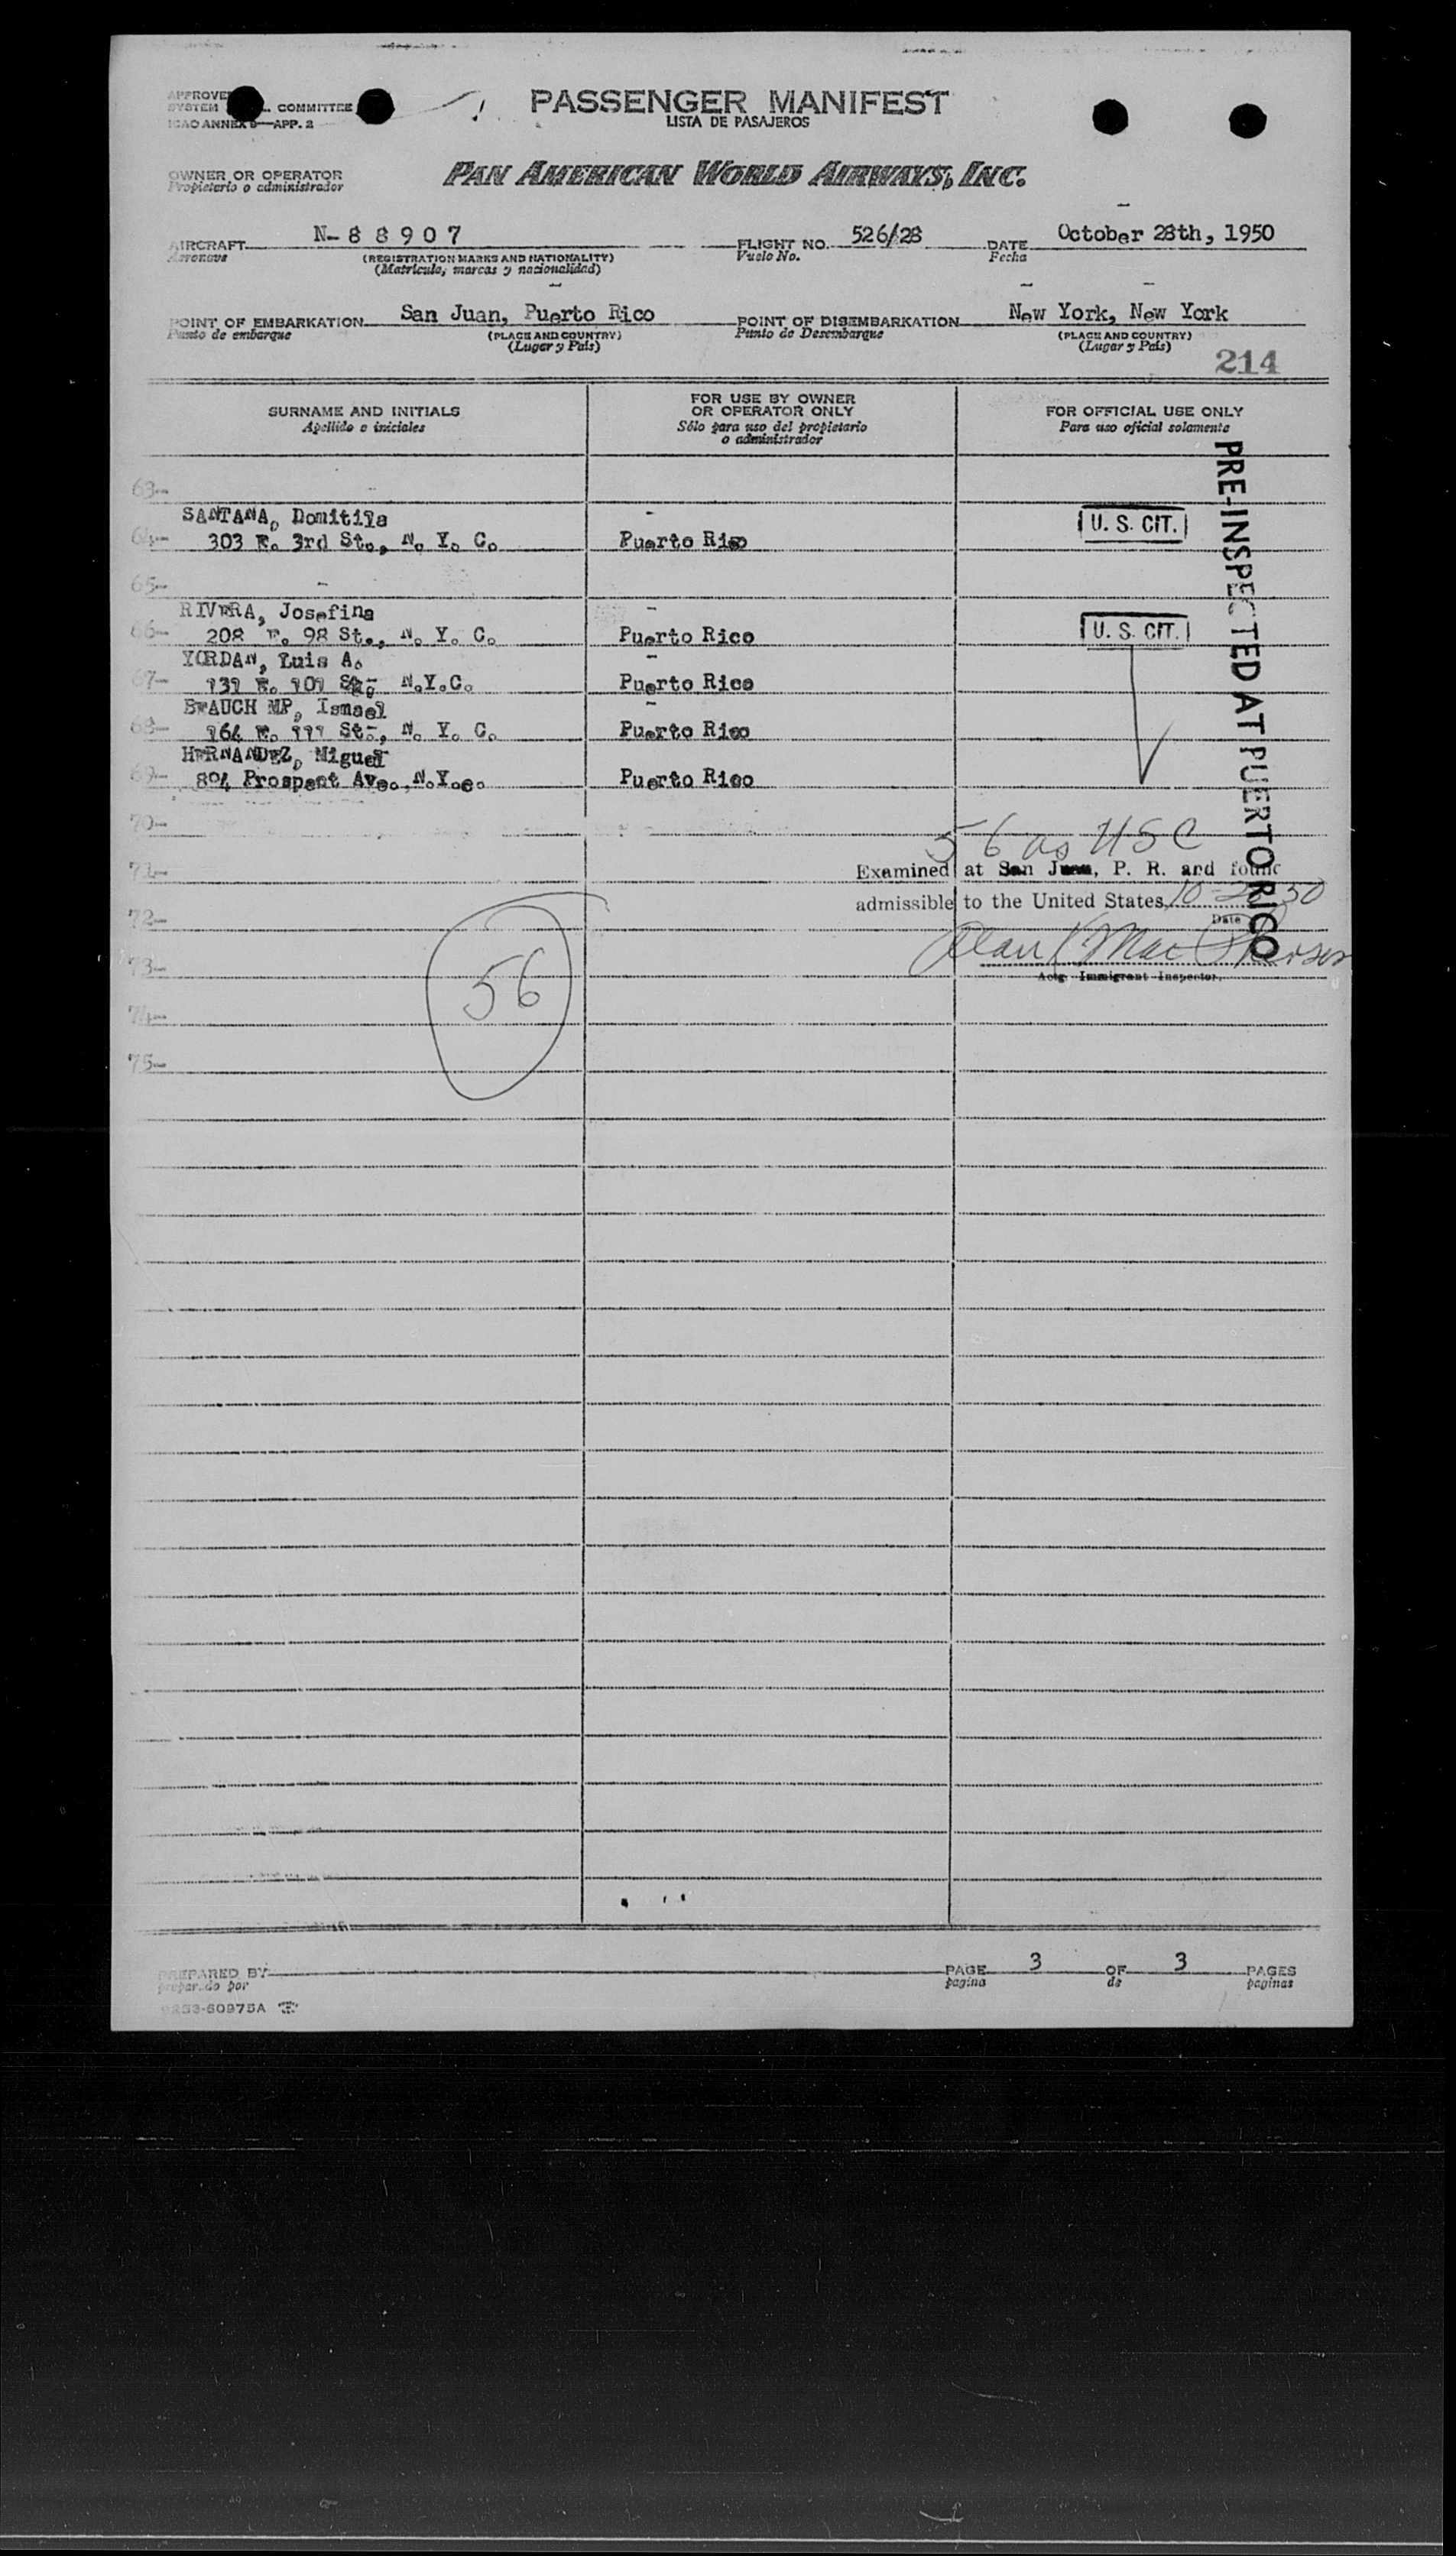 PASSENGER MANIFEST
LISTA DE PASAJEROS
COMMITTEE
ICAO ANNEX 9—APP. 2
OWNER OR OPERATOR
Propietario o administrador
PAN AMERICAN WORLD AIRWAYS, INC.
AIRCRAFT N-88907 FLIGHT NO. 526/28 DATE October 28th, 1950
Aeronave (REGISTRATION MARKS AND NATIONALITY) Vuelo No. Fecha
(Matricula, marcas y nacionalidad)
POINT OF EMBARKATION San Juan, Puerto Rico POINT OF DISEMBARKATION New York, New York
Punto de embarque (PLACE AND COUNTRY) Punto de Desembarque (PLACE AND COUNTRY)
(Lugar y País) (Lugar y País)
214
SURNAME AND INITIALS FOR USE BY OWNER OR OPERATOR ONLY FOR OFFICIAL USE ONLY
Apellido e iniciales Sólo para uso del propietario o administrador Para uso oficial solamente
PRE-INSPECTED AT PUERTO RICO
63-
SANTANA, Domitila U. S. CIT.
64- 303 E. 3rd St., N. Y. C. Puerto Rico
65-
RIVERA, Josefina U. S. CIT.
66- 208 E. 98 St., N. Y. C. Puerto Rico
YORDAN, Luis A.
67- 131 E. 101 St., N.Y.C. Puerto Rico
BEAUCHAMP, Ismael
68- 164 E. 111 St., N. Y. C. Puerto Rico
HERNANDEZ, Miguel
69- 804 Prospect Ave., N.Y.c. Puerto Rico
70-
56 as USC
71- Examined at San Juan, P. R. and found
admissible to the United States
72- Date
73- Actg. Immigrant Inspector.
56
74-
75-
PREPARED BY PAGE 3 OF 3 PAGES
preparado por pagina de paginas